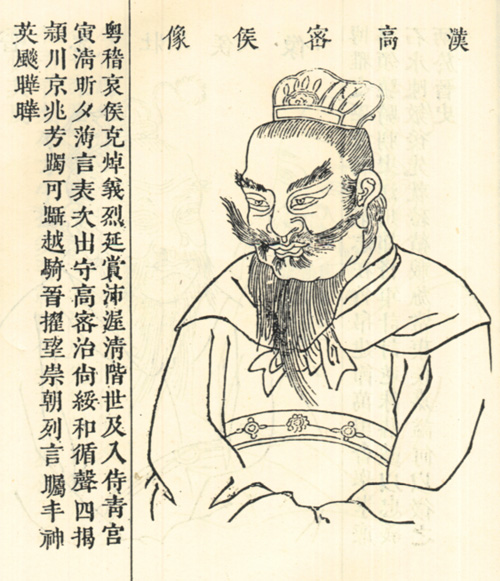 漢高密侯像
粵稽哀侯克焯義烈延賞沛渥清階世及入侍青宮
寅清昕夕薄言表次出守高密治尙綏和循聲四揭
潁川京兆芳躅可躡越騎晉擢望崇朝列言矚丰神
英飈韡韡